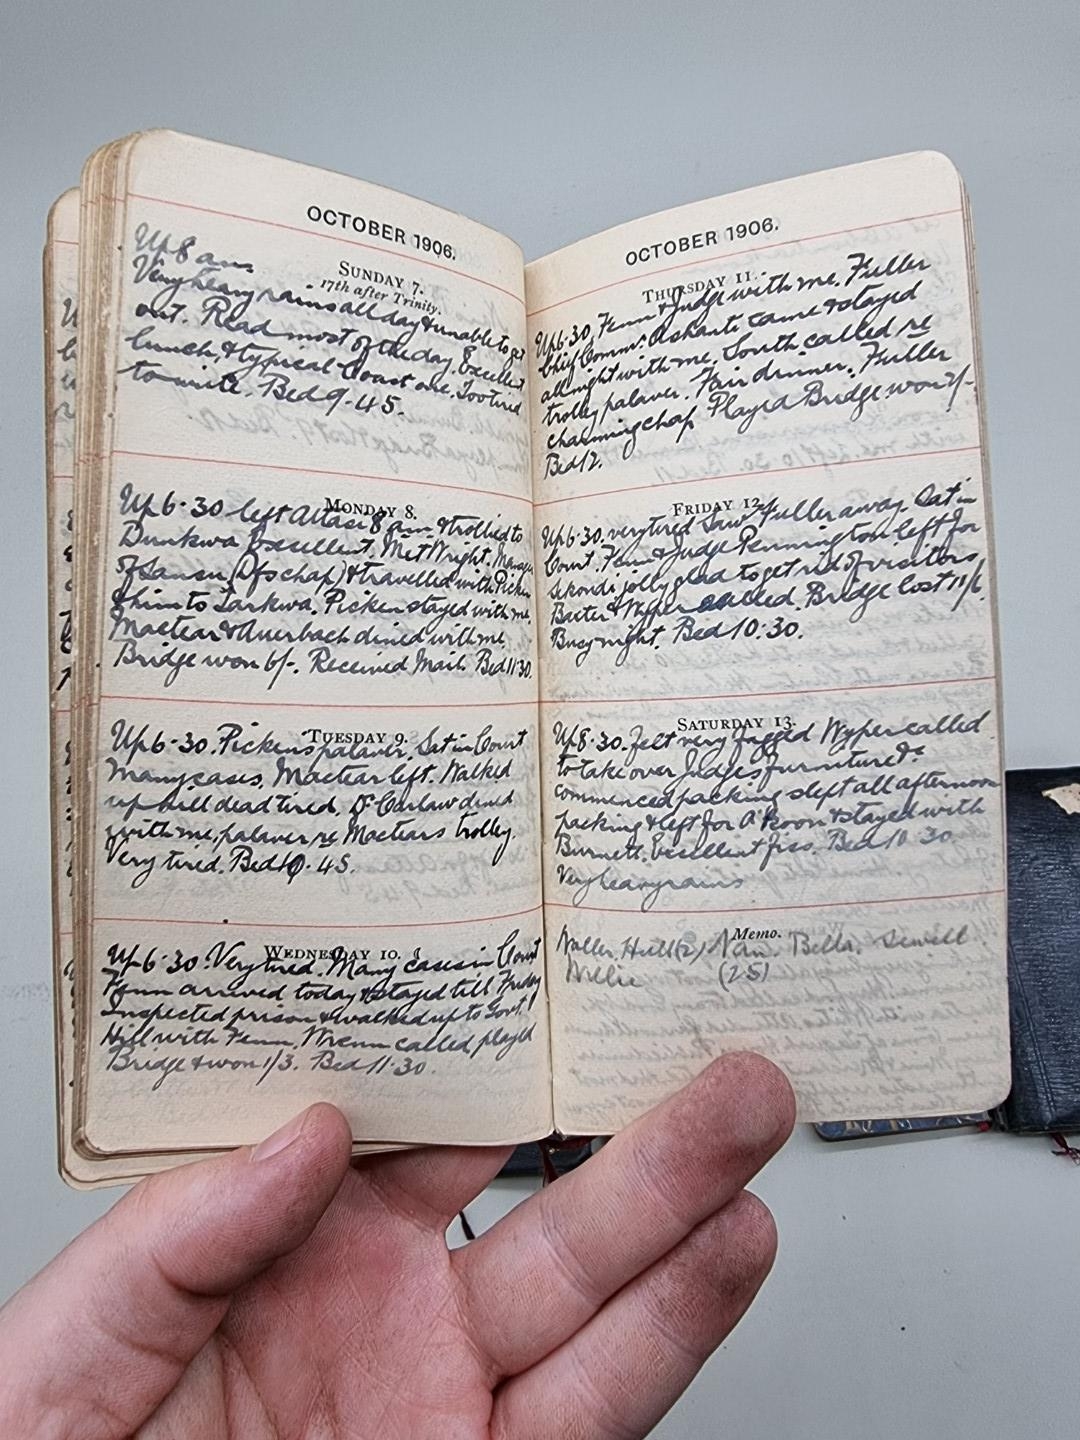 OCTOBER 1906.
SUNDAY 7.
17th after Trinity.
Up 8 am
Very heavy rains all day & unable to get
out. Read most of the day. Excellent
lunch, & typical Coast one. Too tired
to write. Bed 9.45.
MONDAY 8.
Up 6.30 left Attasi 8 am & trollied to
Dunkwa Excellent. Met Wright. Manager
of Sansu (Dfs chap) & travelled with Picken
& him to Tarkwa. Picken stayed with me.
Mactear & Auerbach dined with me
Bridge won 6/-. Received Mail. Bed 11.30.
TUESDAY 9.
Up 6.30. Picken's palaver. Sat in Court
Many cases. Mactear left. Walked
up hill dead tired. Dr Carlaw dined
with me, palaver re Mactears trolley.
Very tired. Bed 10.45.
WEDNESDAY 10.
Up 6.30. Very tired. Many cases in Court
Fenn arrived today & stayed till Friday
Inspected prison & walked up to Govt.
Hill with Fenn. Wrenn called, played
Bridge & won 1/3. Bed 11.30.
OCTOBER 1906.
THURSDAY 11.
Up 6.30. Fenn & Judge with me. Fuller
Chief Commr. Ashanti came & stayed
all night with me. South called re
trolley palaver. Fair dinner. Fuller
charming chap. Played Bridge won 2/-
Bed 12.
FRIDAY 12.
Up 6.30. very tired Saw Fuller away. Sat in
Court. Fenn & Judge Pennington left for
Sekondi jolly glad to get rid of visitors
Baxter & Wyper called. Bridge lost 11/6.
Busy night. Bed 10.30.
SATURDAY 13.
Up 8.30. felt very fagged Wyper called
to take over Judges furniture &c
commenced packing slept all afternoon
packing & left for A'Boon & stayed with
Burnett. Excellent fizz. Bed 10.30.
Very heavy rains
Memo.
Waller, Hull (2) Nan. Bella. Sewell
Willie (25)